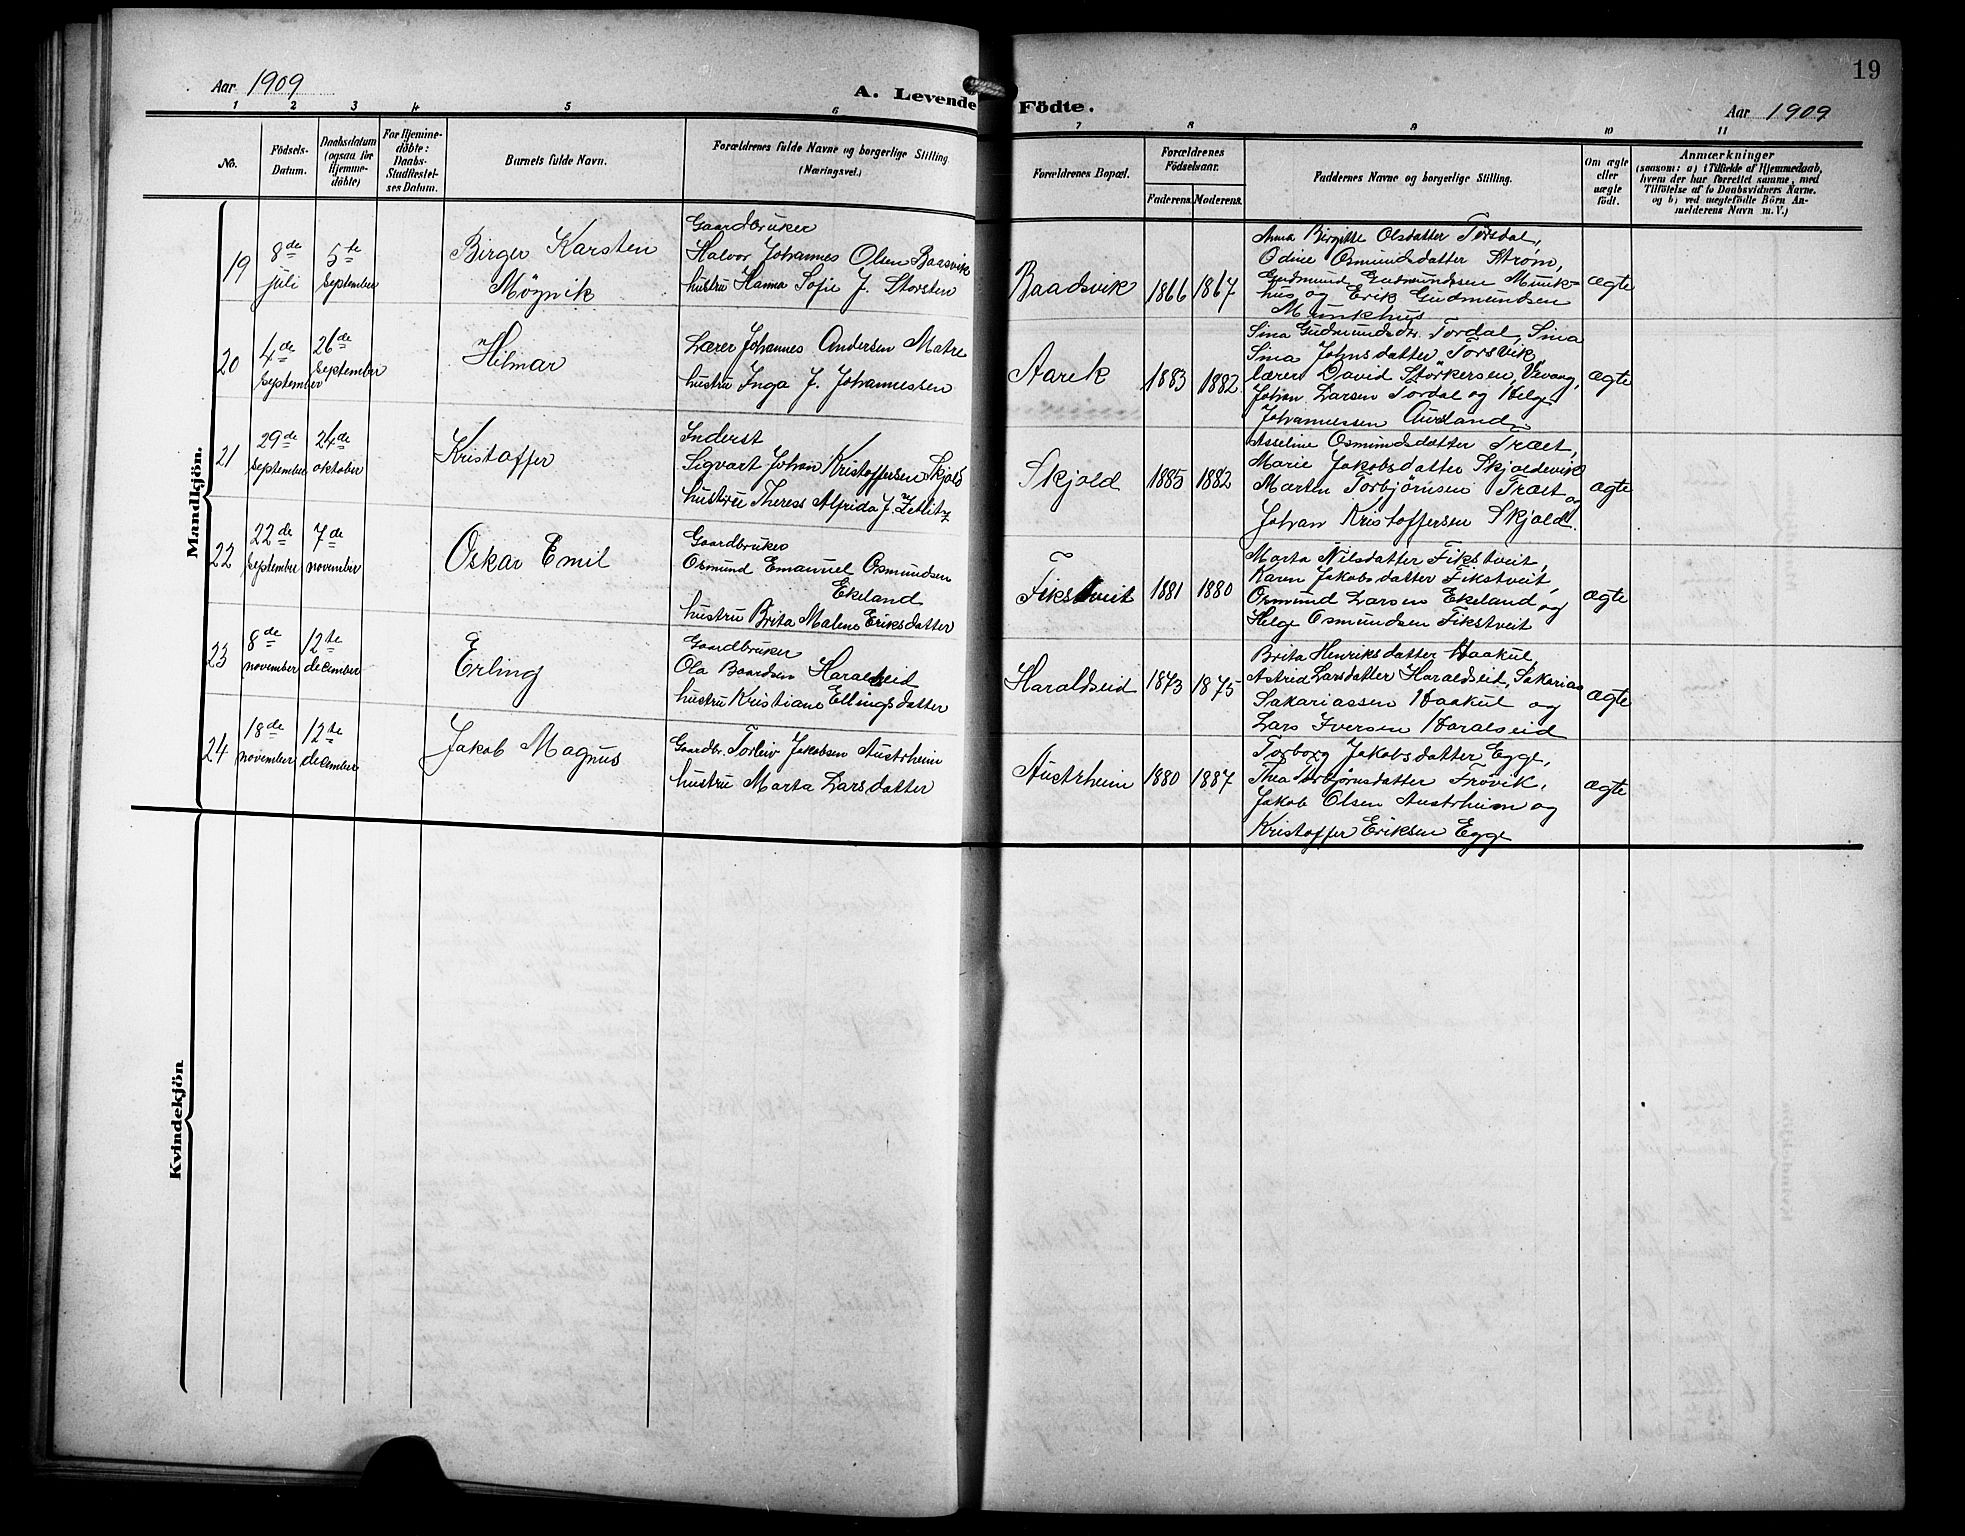 19
Aar 1909
A. Levende Födte.
Aar 1909
1 2 3 4 5 6 7 8 9 10 11
No.
Födsels-
Datum.
Daabsdatum
(ogsaa for
Hjemme-
döbte)
For Hjemme-
döbte:
Daabs-
Stadfæstel-
ses Datum.
Barnets fulde Navn.
Forældrenes fulde Navne og borgerlige Stilling.
(Næringsvei.)
Forældrenes Bopæl.
Forældrenes
Födselsaar.
Faderens. Moderens.
Faddernes Navne og borgerlige Stilling.
Om ægte
eller
uægte
födt.
Anmærkninger
(saasom: a) i Tilfælde af Hjemmedaab,
hvem der har forrettet samme, med
Tilföielse af to Daabsvidners Navne.
og b) ved uægtefödte Börn An-
melderens Navn m. V.)
Mandkjön.
19
8de
juli
5te
september
Birger Karsten
Gaardbruker
Halvor Johannes Olsen Baasvik
hustru Hanna Sofie J. Storsten
Baadsvik
1866 1867
Anna Birgitte Olsdatter Torsdal,
Odine Osmundsdatter Strøm,
Gudmund Gudmundsen Munk-
hus og Erik Gudmundsen
Munkhus
ægte
20
4de
september
26de
september
Hilmar
Lærer Johannes Andersen Matre
hustru Inga J. Johannessen
Aarek
1883 1882
Sina Gudmundsdtr. Tordal, Sina
Sina Johnsdatter Torsvik,
lærer David Størkersen, Vevang,
Johan Larsen Tordal og Helge
Johannessen Aursland
ægte
21
29de
september
24de
oktober
Kristoffer
Inderst
Sigvart Johan Kristoffersen Skjold
hustru Theress Alfrida J. Zetlitz
Skjold
1885 1882
Asseline Osmundsdatter Træet,
Marie Jakobsdatter Skjoldevik
Marten Torbjørnsen Træet og
Johan Kristoffersen Skjold.
ægte
22
22de
september
7de
november
Oskar Emil
Gaardbruker
Osmund Emanuel Osmundsen
Ekeland
hustru Brita Malene Eriksdatter
Fikstveit
1881 1880
Marta Nilsdatter Fikstveit,
Karen Jakobsdatter Fikstveit,
Osmund Larsen Ekeland og
Helge Osmundsen Fikstveit
ægte
23
8de
november
12te
december
Erling
Gaardbruker
Ola Baardsen Haraldseid
hustru Kristiane Ellingsdatter
Haraldseid
1873 1875
Brita Henriksdatter Haakul,
Astrid Larsdatter Haraldseid, Sakarias
Sakariassen Haakul og
Lars Iversen Haralseid
ægte
24
18de
november
12te
december
Jakob Magnus
Gaardbr. Torleiv Jakobsen Austrheim
hustru Marta Larsdatter
Austrheim
1880 1887
Torborg Jakobsdatter Egge,
Thea Torbjørnsdatter Frøvik,
Jakob Olsen Austrheim og
Kristoffer Eriksen Egge
ægte
Kvindekjön